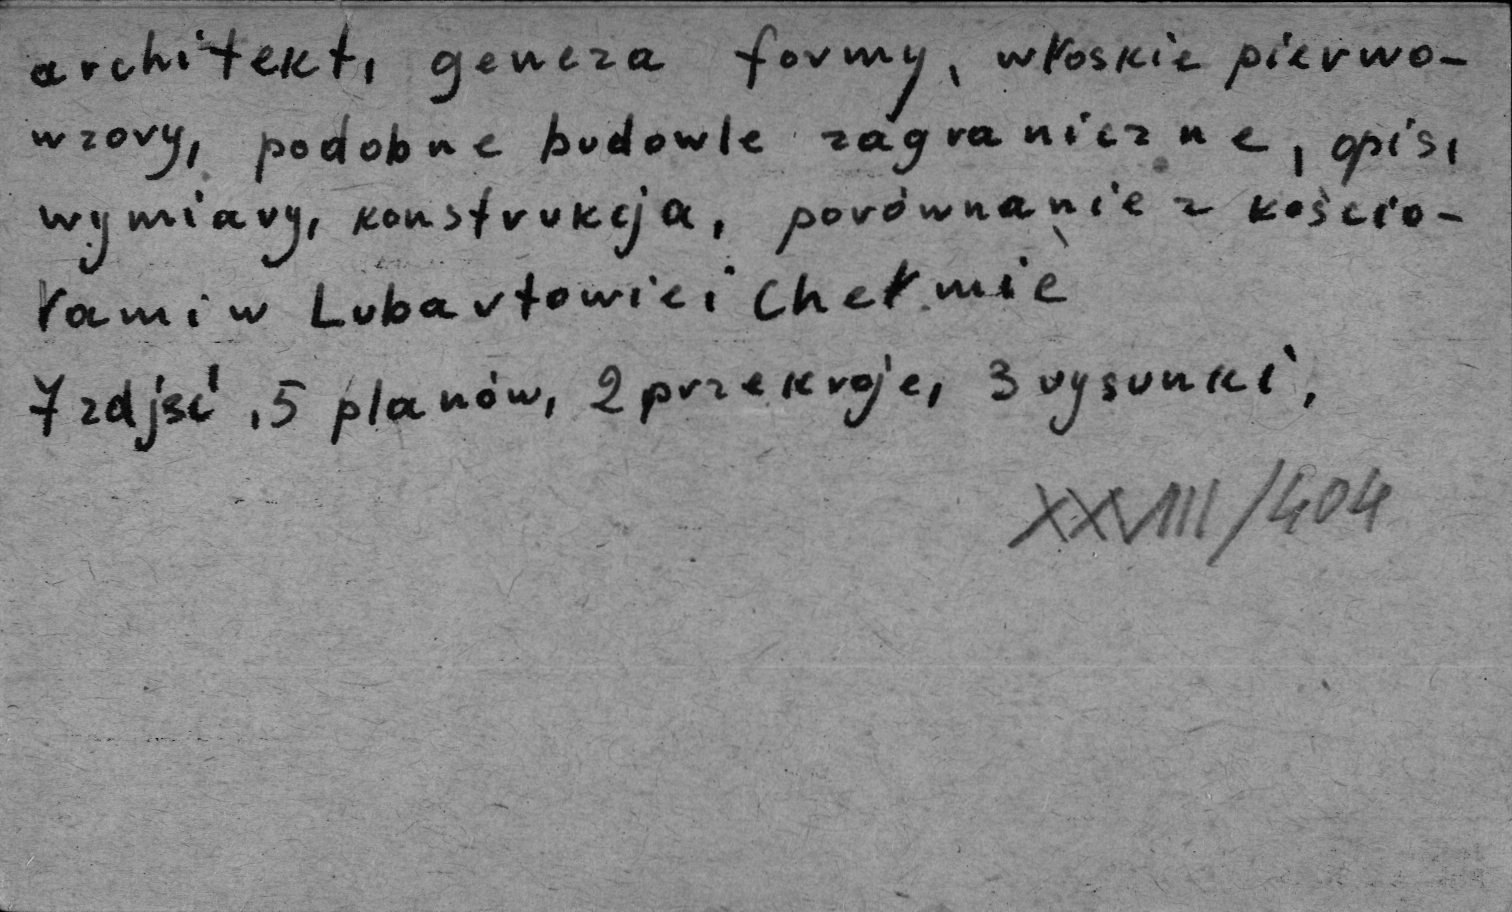 architekt, geneza formy, włoskie pierwo-
wzory, podobne budowle zagraniczne, opis,
wymiary, konstrukcja, porównanie z kościo-
łami w Lubartowie i Chełmie
7 zdjęć, 5 planów, 2 przekroje, 3 rysunki,
XXVIII/404